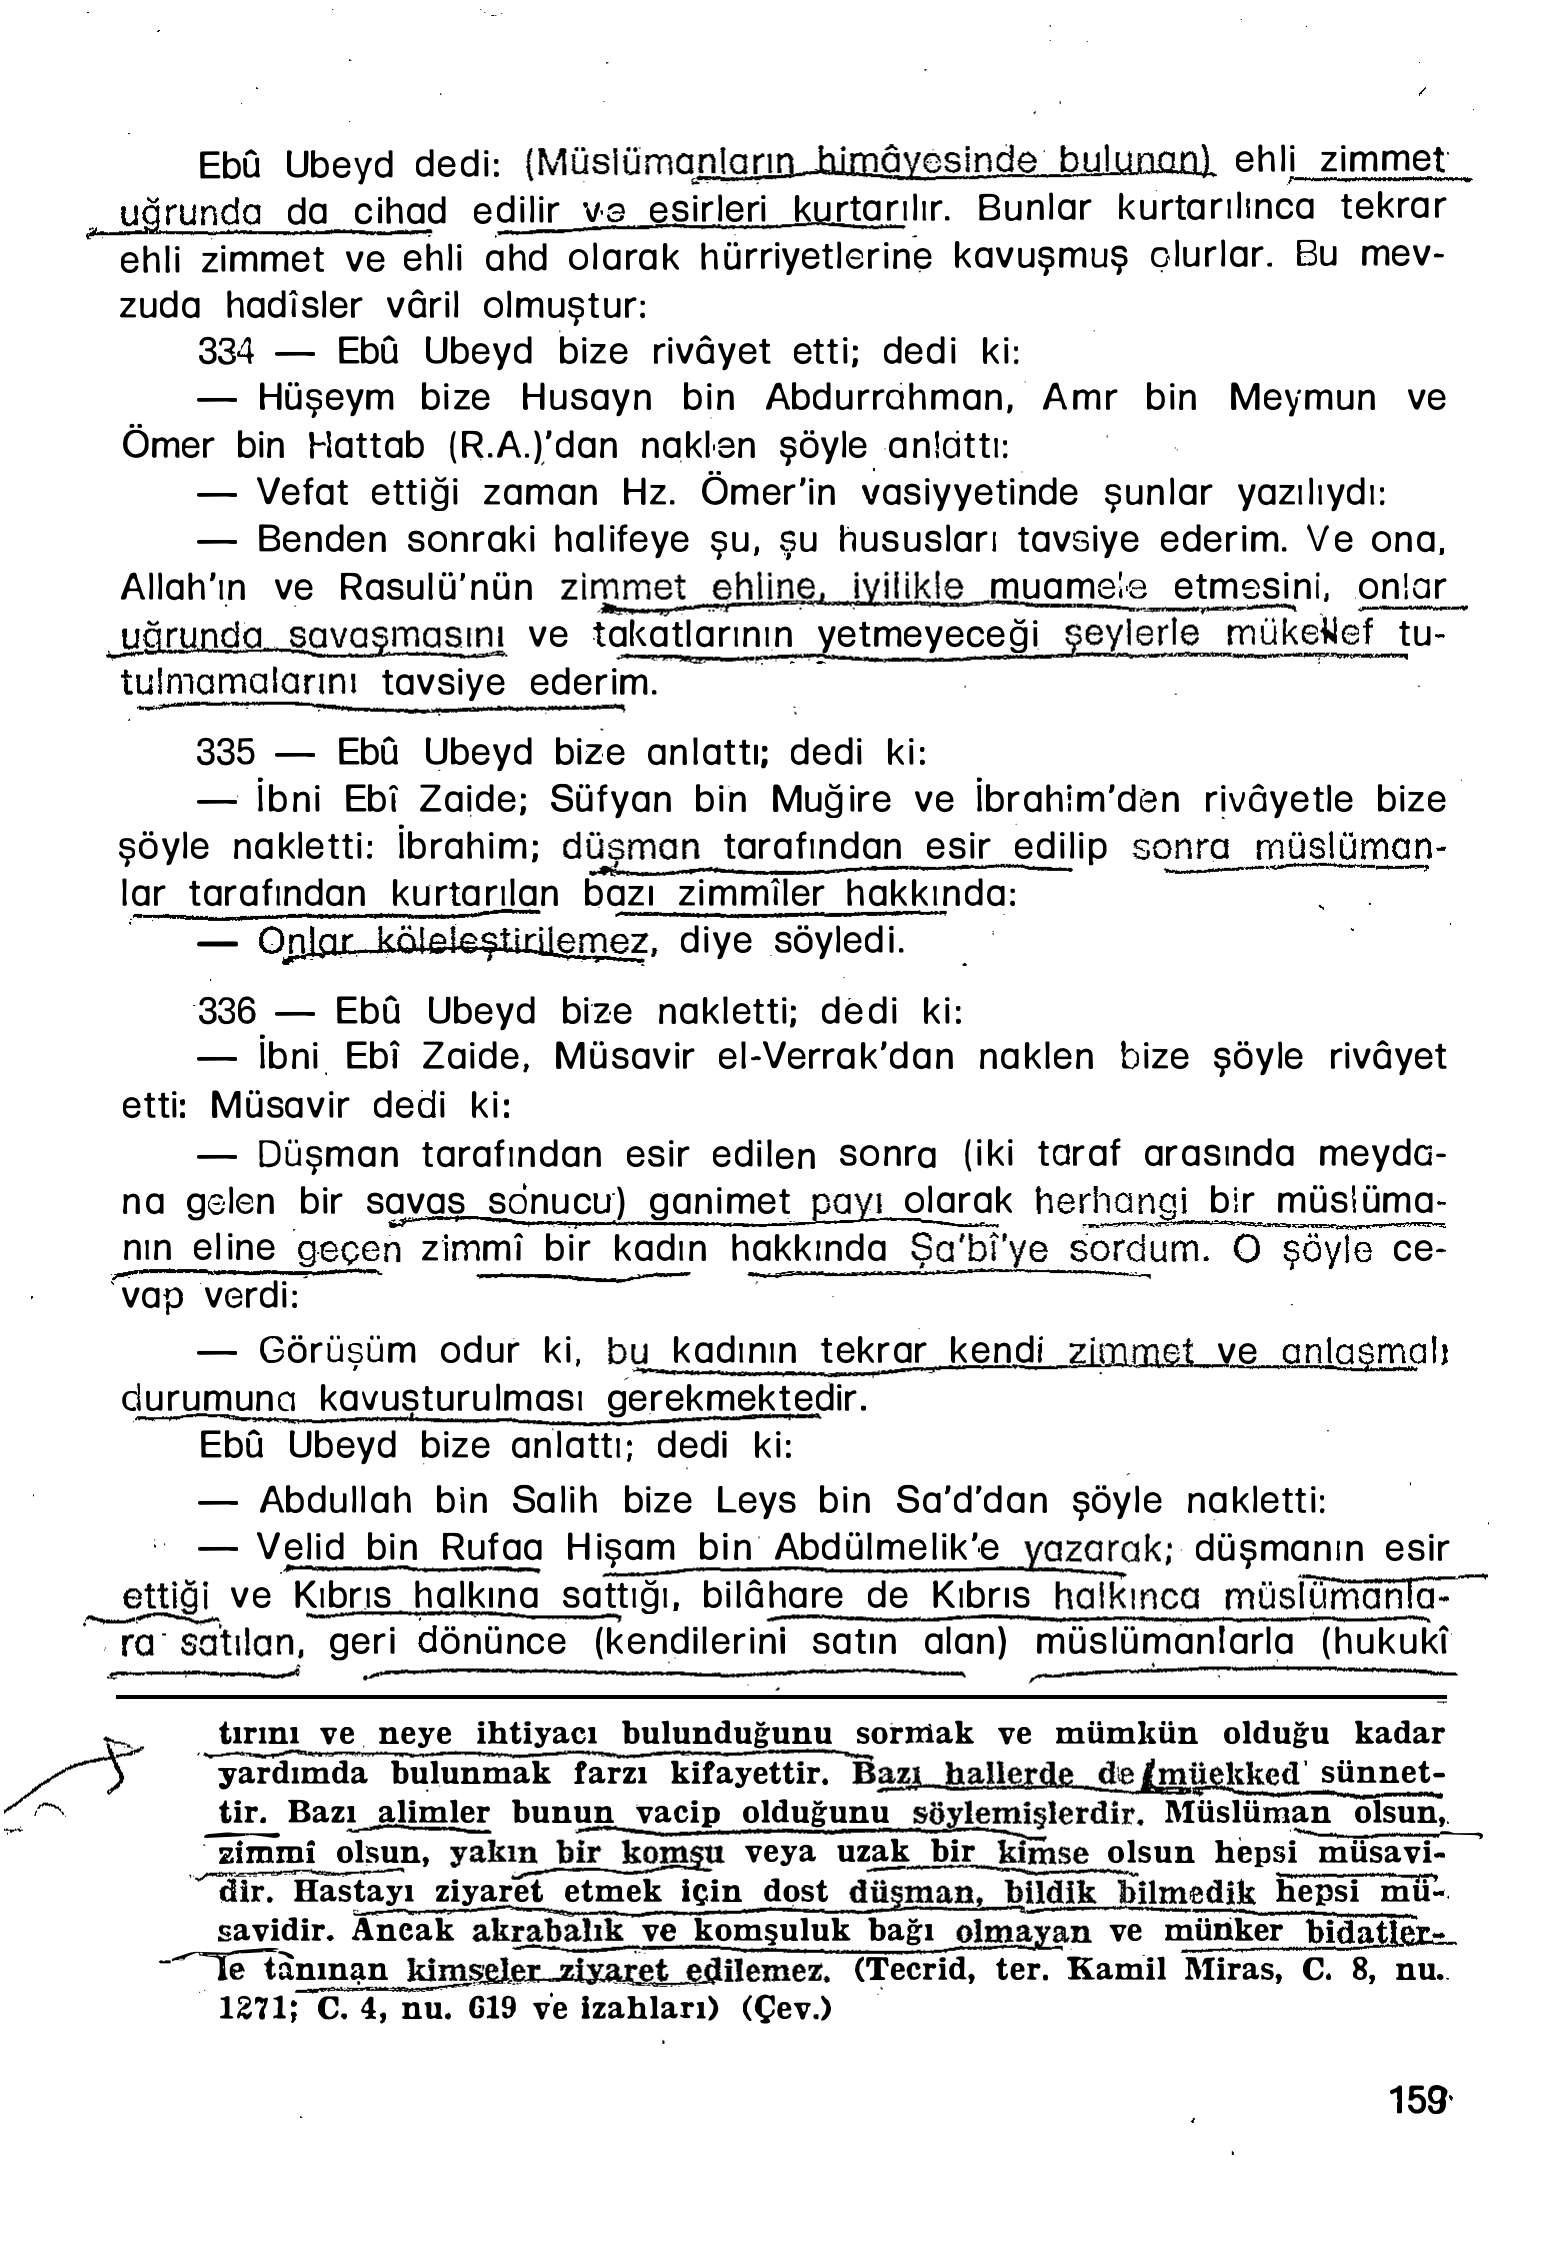 Ebû Ubeyd dedi: (Müslümanların himâyesinde bulunan) ehli zimmet
uğrunda da cihad edilir ve esirleri kurtarılır. Bunlar kurtarılınca tekrar
ehli zimmet ve ehli ahd olarak hürriyetlerine kavuşmuş olurlar. Bu mev-
zuda hadîsler vâril olmuştur:
334 — Ebû Ubeyd bize rivâyet etti; dedi ki:
— Hüşeym bize Husayn bin Abdurrahman, Amr bin Meymun ve
Ömer bin Hattab (R.A.)'dan naklen şöyle anlattı:
— Vefat ettiği zaman Hz. Ömer'in vasiyyetinde şunlar yazılıydı:
— Benden sonraki halifeye şu, şu hususları tavsiye ederim. Ve ona,
Allah'ın ve Rasulü'nün zimmet ehline, iyilikle muamele etmesini, onlar
uğrunda savaşmasını ve takatlarının yetmeyeceği şeylerle mükellef tu-
tulmamalarını tavsiye ederim.
335 — Ebû Ubeyd bize anlattı; dedi ki:
— İbni Ebî Zaide; Süfyan bin Muğire ve İbrahim'den rivâyetle bize
şöyle nakletti: İbrahim; düşman tarafından esir edilip sonra müslüman-
lar tarafından kurtarılan bazı zimmîler hakkında:
— Onlar köleleştirilemez, diye söyledi.
336 — Ebû Ubeyd bize nakletti; dedi ki:
— İbni Ebî Zaide, Müsavir el-Verrak'dan naklen bize şöyle rivâyet
etti: Müsavir dedi ki:
— Düşman tarafından esir edilen sonra (iki taraf arasında meyda-
na gelen bir savaş sonucu) ganimet payı olarak herhangi bir müslüma-
nın eline geçen zimmî bir kadın hakkında Şa'bî'ye sordum. O şöyle ce-
vap verdi:
— Görüşüm odur ki, bu kadının tekrar kendi zimmet ve anlaşmalı
durumuna kavuşturulması gerekmektedir.
Ebû Ubeyd bize anlattı; dedi ki:
— Abdullah bin Salih bize Leys bin Sa'd'dan şöyle nakletti:
— Velid bin Rufaa Hişam bin Abdülmelik'e yazarak; düşmanın esir
ettiği ve Kıbrıs halkına sattığı, bilâhare de Kıbrıs halkınca müslümanla-
ra satılan, geri dönünce (kendilerini satın alan) müslümanlarla (hukukî
tırını ve neye ihtiyacı bulunduğunu sormak ve mümkün olduğu kadar
yardımda bulunmak farzı kifayettir. Bazı hallerde de müekked sünnet-
tir. Bazı alimler bunun vacip olduğunu söylemişlerdir. Müslüman olsun,
zimmî olsun, yakın bir komşu veya uzak bir kimse olsun hepsi müsavi-
dir. Hastayı ziyaret etmek için dost düşman, bildik bilmedik hepsi mü-
savidir. Ancak akrabalık ve komşuluk bağı olmayan ve münker bidatler-
le tanınan kimseler ziyaret edilemez. (Tecrid, ter. Kamil Miras, C. 8, nu.
1271; C. 4, nu. 619 ve izahları) (Çev.)
159